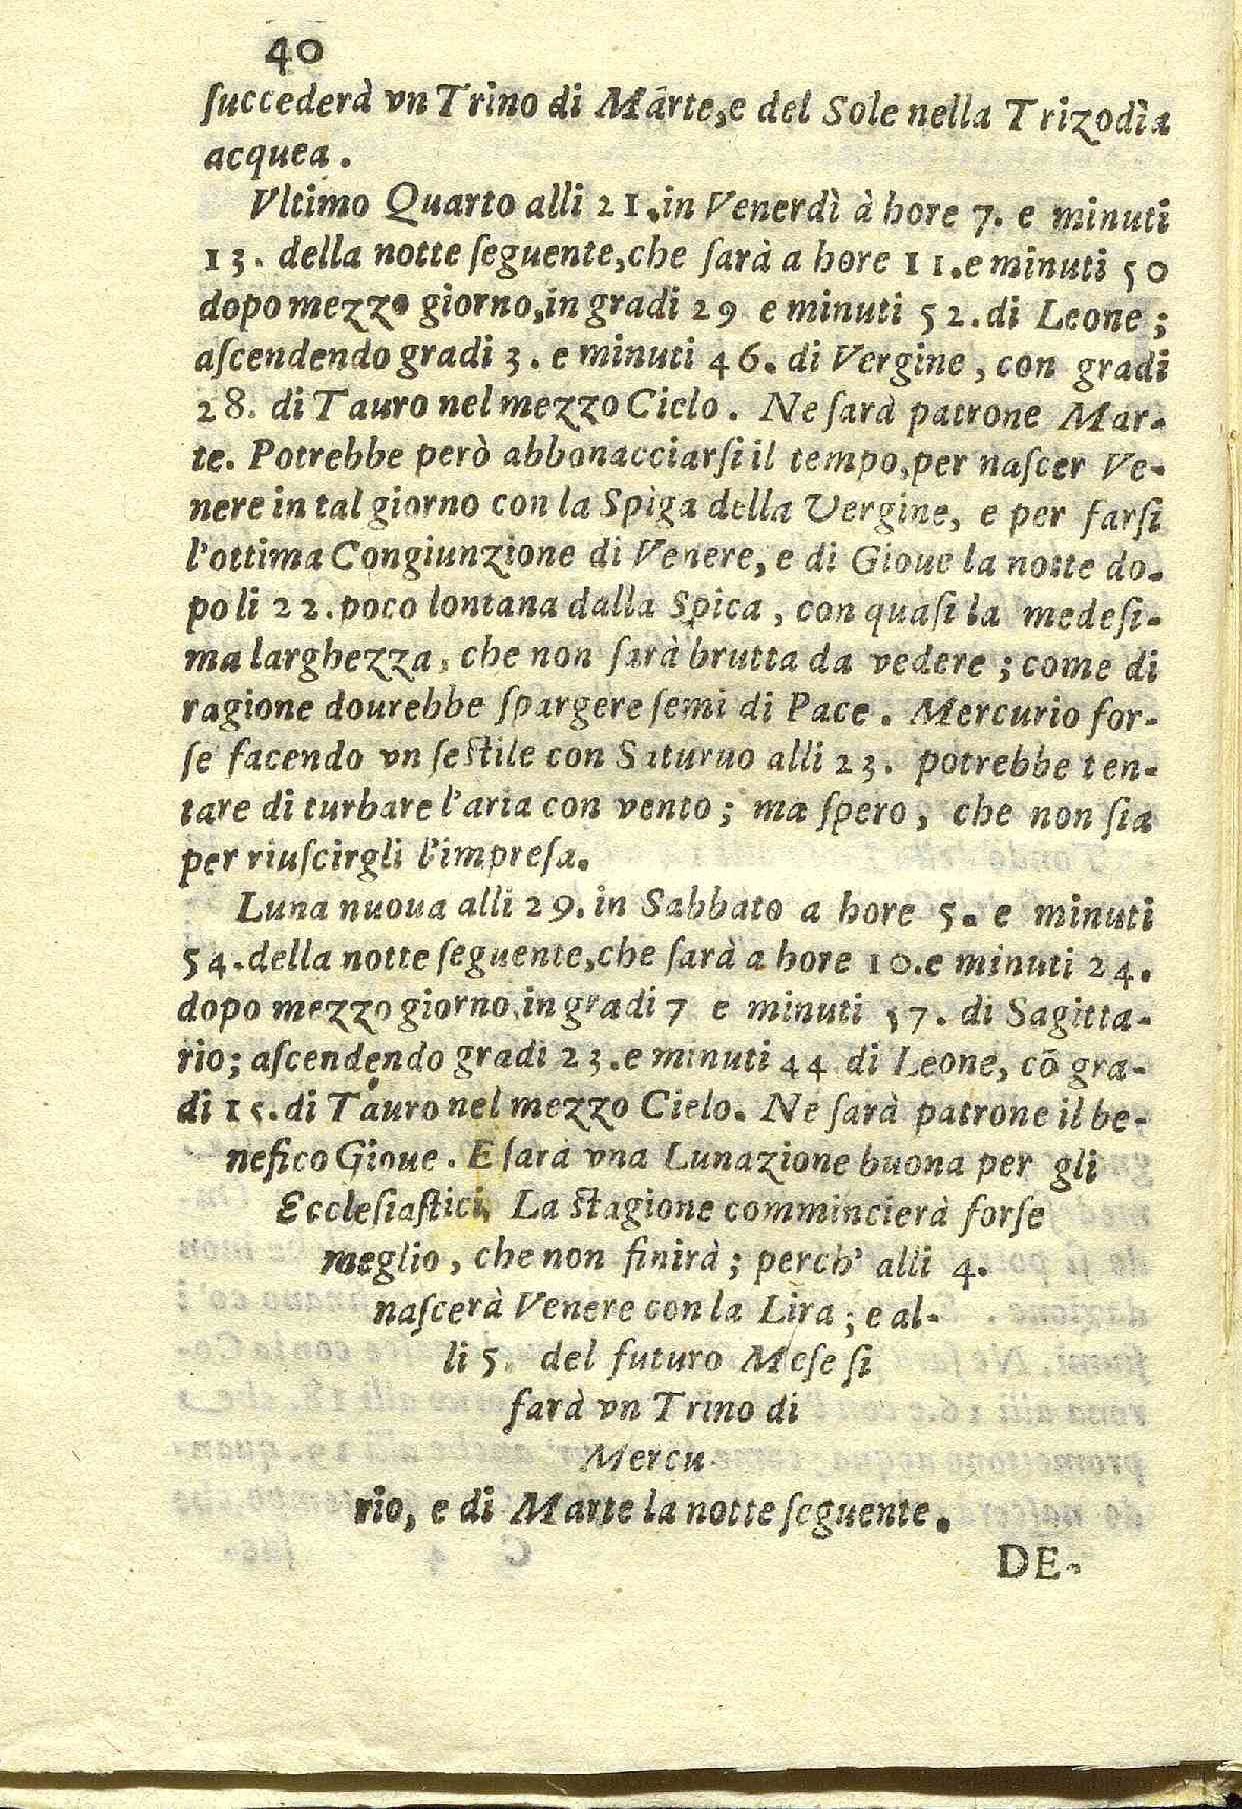 40
ſuccederà vn Trino di Marte, e del Sole nella Trizodìa
acquea.
Vltimo Quarto alli 21. in Venerdì à hore 7. e minuti
13. della notte ſeguente, che ſarà a hore 11. e minuti 50
dopo mezzo giorno, in gradi 29 e minuti 52. di Leone;
aſcendendo gradi 3. e minuti 46. di Vergine, con gradi
28. di Tauro nel mezzo Ciclo. Ne ſarà patrone Mar-
te. Potrebbe però abbonacciarſi il tempo, per naſcer Ve-
nere in tal giorno con la Spìga della Vergine, e per farſi
l'ottima Congiunzione di Venere, e di Gioue la notte do-
po li 22. poco lontana dalla Spica, con quaſi la medeſi-
ma larghezza, che non ſarà brutta da vedere; come di
ragione dourebbe ſpargere ſemi di Pace. Mercurio for-
ſe facendo vn ſeſtile con Saturno alli 23. potrebbe ten-
tare di turbare l'aria con vento; ma ſpero, che non ſia
per riuſcirgli l'impreſa.
Luna nuoua alli 29. in Sabbato a hore 5. e minuti
54. della notte ſeguente, che ſarà a hore 10. e minuti 24.
dopo mezzo giorno, in gradi 7 e minuti 57. di Sagitta-
rio; aſcendendo gradi 23. e minuti 44 di Leone, cō gra-
di 15. di Tauro nel mezzo Cielo. Ne ſarà patrone il be-
nefico Gioue. E ſarà vna Lunazione buona per gli
Eccleſiaſtici. La ſtagione commincierà forſe
meglio, che non finirà; perch' alli 4.
naſcerà Venere con la Lira; e al-
li 5. del futuro Meſe ſi
farà vn Trino di
Mercu-
rio, e di Marte la notte ſeguente.
DE-